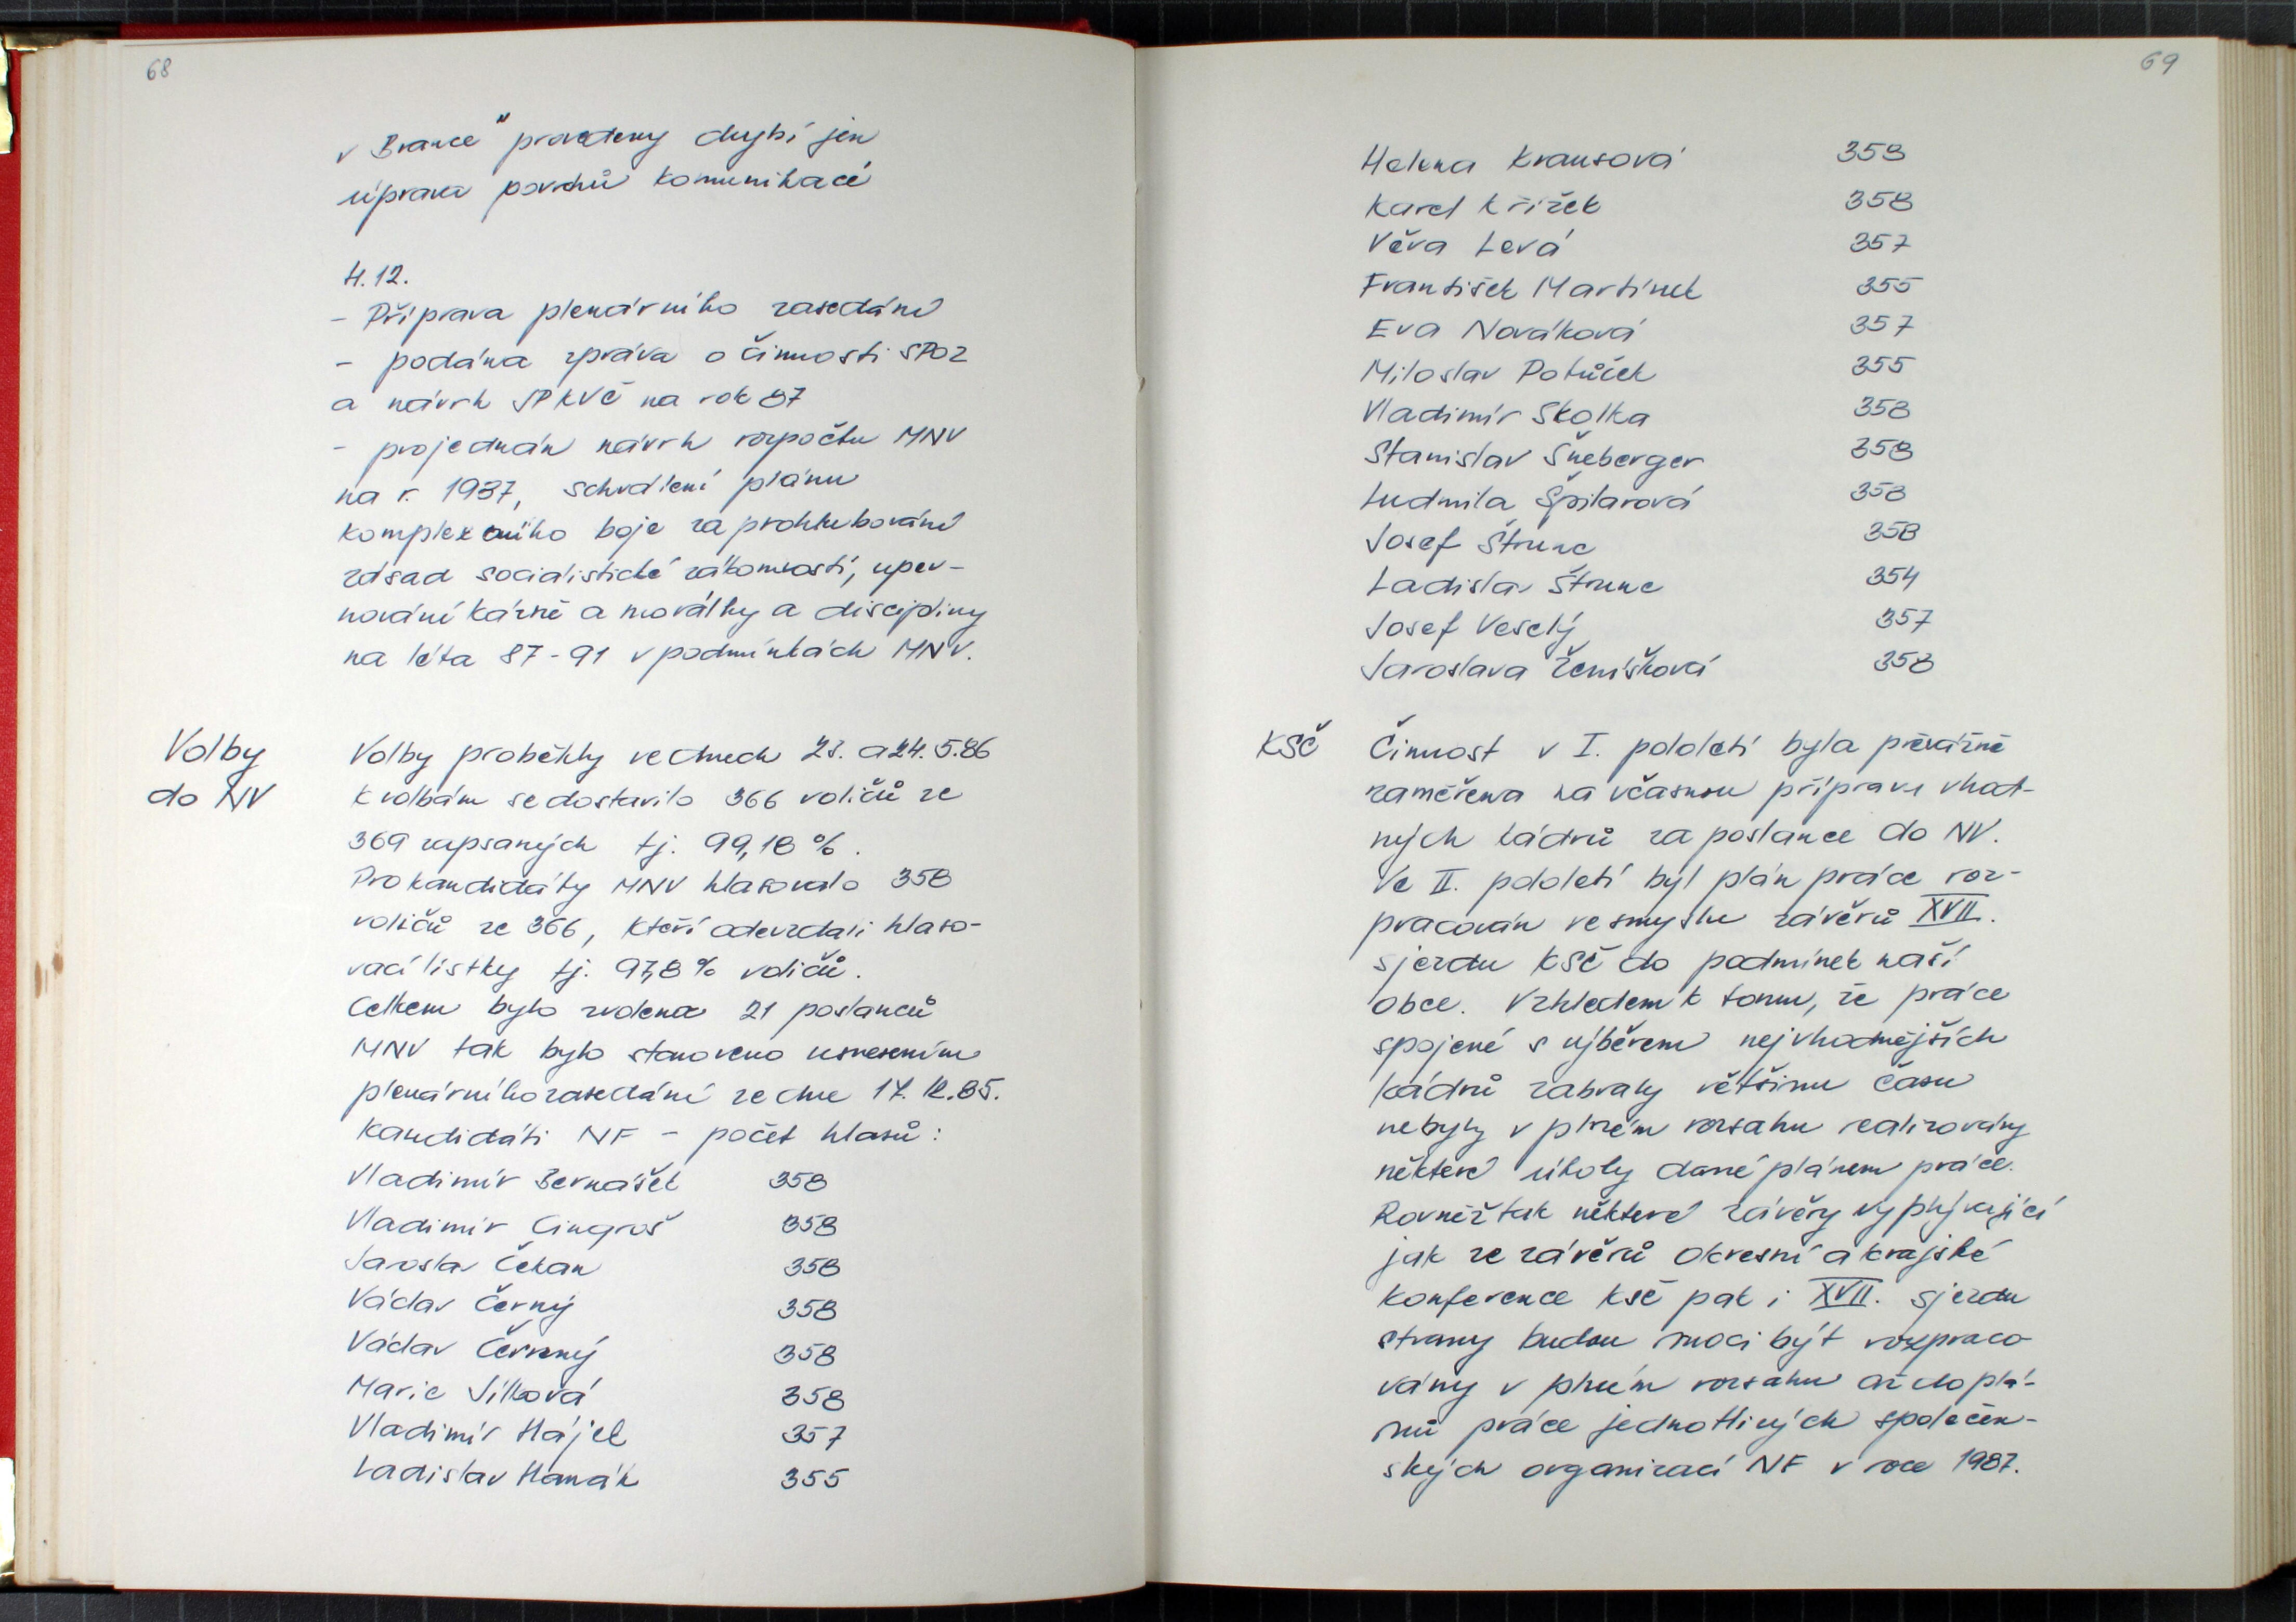 68
v Brance" provedeny chybí jen
úprava povrchů komunikací
4.12.
- Příprava plenárního zasedání
- podána zpráva o činnosti SPOZ
a návrh JPKVČ na rok 87
- projednán návrh rozpočtu MNV
na r. 1987, schválení plánu
komplexního boje za prohlubování
zásad socialistické zákonnosti, upev-
nování kázně a morálky a disciplíny
na léta 87-91 v podmínkách MNV.
Volby
do NV
Volby proběhly ve dnech 23. a 24. 5.86
K volbám se dostavilo 366 voličů ze
369 zapsaných tj. 99,18 %.
Pro kandidáty MNV hlasovalo 358
voličů ze 366, kteří odevzdali hlaso-
vací lístky tj. 97,8 % voličů.
Celkem bylo zvoleno 21 poslanců
MNV tak bylo stanoveno usnesením
plenárního zasedání ze dne 17. 12.85.
Kandidáti NF - počet hlasů:
Vladimír Bernášek 358
Vladimír Cingroš 358
Jaroslav Čekan 358
Václav Černý 358
Václav Červený 358
Marie Jílková 358
Vladimír Hájek 357
Ladislav Hanák 355
69
Helena Krausová 358
Karel Křížek 358
Věra Levá 357
František Martínek 355
Eva Nováková 357
Miloslav Potůček 355
Vladimír Skolka 358
Stanislav Šneberger 358
Ludmila Špilarová 358
Josef Štrunc 358
Ladislav Štrunc 354
Josef Veselý 357
Jaroslava Ženíšková 358
KSČ
Činnost v I. pololetí byla převážně
zaměřena na včasnou přípravu vhod-
ných kádrů za poslance do NV.
Ve II. pololetí byl plán práce roz-
pracován ve smyslu závěrů XVII.
sjezdu KSČ do podmínek naší
obce. Vzhledem k tomu, že práce
spojené s výběrem nejvhodnějších
kádrů zabraly většinu času
nebyly v plném rozsahu realizovány
některé úkoly dané plánem práce.
Rovněž tak některé závěry vyplývající
jak ze závěrů okresní a krajské
konference KSČ pak i XVII. sjezdu
strany budou moci být rozpraco-
vány v plném rozsahu až do plá-
nů práce jednotlivých společen-
ských organizací NF v roce 1987.